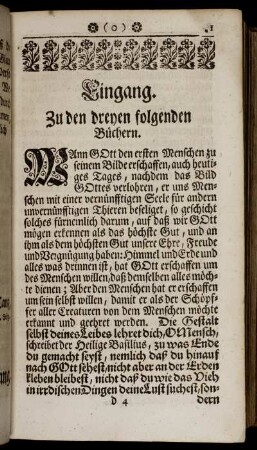 (o) 1
Eingang.
Zu den dreyen folgenden
Büchern.
WAnn GOtt den ersten Menschen zu
seinem Bilde erschaffen, auch heuti-
ges Tages, nachdem das Bild
GOttes verlohren, er uns Men-
schen mit einer vernünfftigen Seele für andern
unvernünfftigen Thieren beseliget, so geschicht
solches fürnemlich darum, auf daß wir GOtt
mögen erkennen als das höchste Gut, und an
ihm als dem höchsten Gut unsere Ehre, Freude
und Vergnügung haben: Himmel und Erde und
alles was drinnen ist, hat GOtt erschaffen um
des Menschen willen, daß demselben alles möch-
te dienen; Aber den Menschen hat er erschaffen
um sein selbst willen, damit er als der Schöpf-
fer aller Creaturen von dem Menschen möchte
erkannt und geehret werden. Die Gestalt
selbst deines Leibes lehret dich, O Mensch,
schreibet der Heilige Basilius, zu was Ende
du gemacht seyst, nemlich daß du hinauf
nach GOtt sehest, nicht aber an der Erden
kleben bleibest, nicht daß du wie das Vieh
in irrdischen Dingen deine Lust suchest, son-
d 4 dern